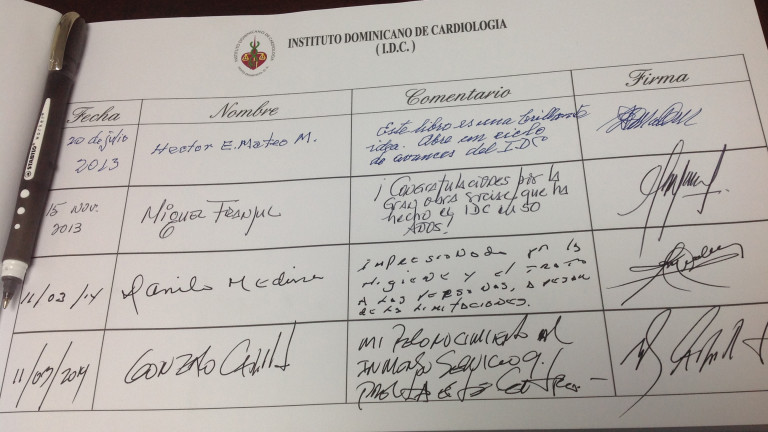 INSTITUTO DOMINICANO DE CARDIOLOGIA
( I.D.C. )
Fecha Nombre Comentario Firma
20 de julio
2013
Hector E. Mateo M.
Este libro es una brillante
idea. Abre un ciclo
de avances del IDC
15 NOV.
2013
MIGUEL FRANJUL
¡ CONGRATULACIONES POR LA
GRAN OBRA SOCIAL que ha
hecho el IDC EN 50
AÑOS!
11/03/14
Danilo Medina
IMPRESIONADO por la
Higiene y el TRATO
A LAS PERSONAS, A PESAR
DE LAS LIMITACIONES.
11/03/2014
GONZALO
MI RECONOCIMIENTO AL
INMENSO SERVICIO q.
PRESTA ESTE Centro.
STABILO